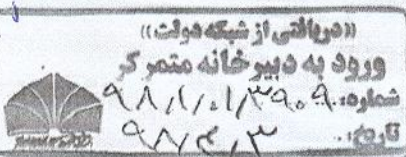 ((دریافتی از شبکه دولت))
ورود به دبیرخانه متمرکز
شماره: ۹۸/۱/۰۱/۳۹۰۹
تاریخ: ۹۸/۴/۳